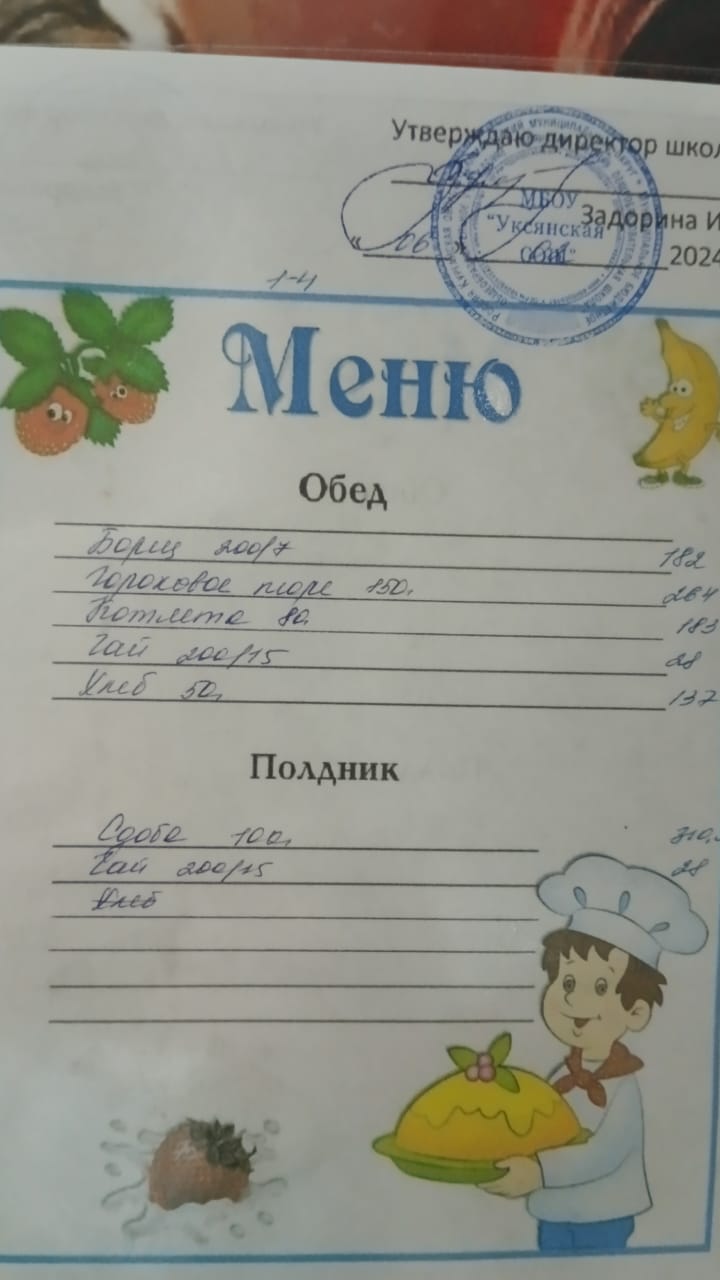 Утверждаю директор школ
МБОУ
"Уксянская
СОШ"
Задорина И
« 06 » 2024
1-4
Меню
Обед
Борщ 200/7 182
Гороховое пюре 150г 264
Котлета 80г 183
Чай 200/15 28
Хлеб 50г 137
Полдник
Сдоба 100г
Чай 200/15 28
Хлеб